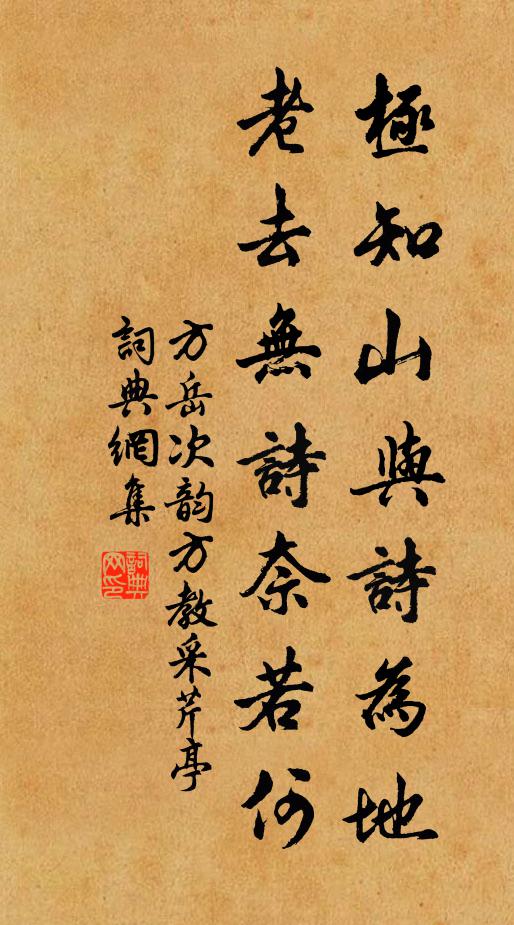 極知山與詩為地
老去無詩奈若何
方岳次韵方教采芹亭
詞典網集
詞典网印